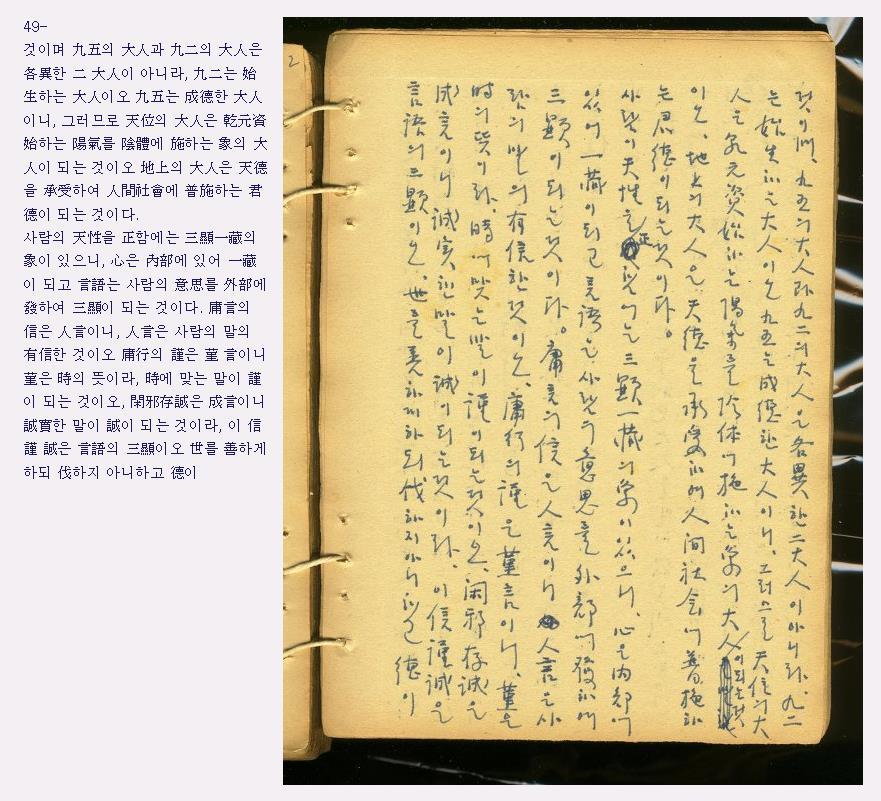 49-
것이며 九五의 大人과 九二의 大人은
各異한 二 大人이 아니라, 九二는 始
生하는 大人이오 九五는 成德한 大人
이니, 그러므로 天位의 大人은 乾元資
始하는 陽氣를 陰體에 施하는 象의 大
人이 되는 것이오 地上의 大人은 天德
을 承受하여 人間社會에 普施하는 君
德이 되는 것이다.
사람의 天性을 正함에는 三顯一藏의
象이 있으니, 心은 內部에 있어 一藏
이 되고 言語는 사람의 意思를 外部에
發하여 三顯이 되는 것이다. 庸言의
信은 人言이니, 人言은 사람의 말의
有信한 것이오 庸行의 謹은 菫 言이니
菫은 時의 뜻이라, 時에 맞는 말이 謹
이 되는 것이오, 閑邪存誠은 成言이니
誠實한 말이 誠이 되는 것이라, 이 信
謹 誠은 言語의 三顯이오 世를 善하게
하되 伐하지 아니하고 德이
2
것이며, 九五의 大人과 九二의 大人은 各異한 二大人이 아니라, 九二
는 始生하는 大人이오 九五는 成德한 大人이니, 그러므로 天位의 大
人은 乾元資始하는 陽氣를 陰体에 施하는 象의 大人이 되는 것
이오, 地上의 大人은 天德을 承受하여 人間社会에 普施하
는 君德이 되는 것이다。
사람의 天性을 正함에는 三顯一藏의 象이 있으니, 心은 内部에
있어 一藏이 되고 言語는 사람의 意思를 外部에 發하여
三顯이 되는 것이다。 庸言의 信은 人言이니 人言은 사
람의 말의 有信한 것이오, 庸行의 謹은 菫言이니, 菫은
時의 뜻이라, 時에 맞는 말이 謹이 되는 것이오, 閑邪存誠은
成言이니 誠実한 말이 誠이 되는 것이라, 이 信謹誠은
言語의 三顯이오, 世를 善하게 하되 伐하지 아니하고 德이